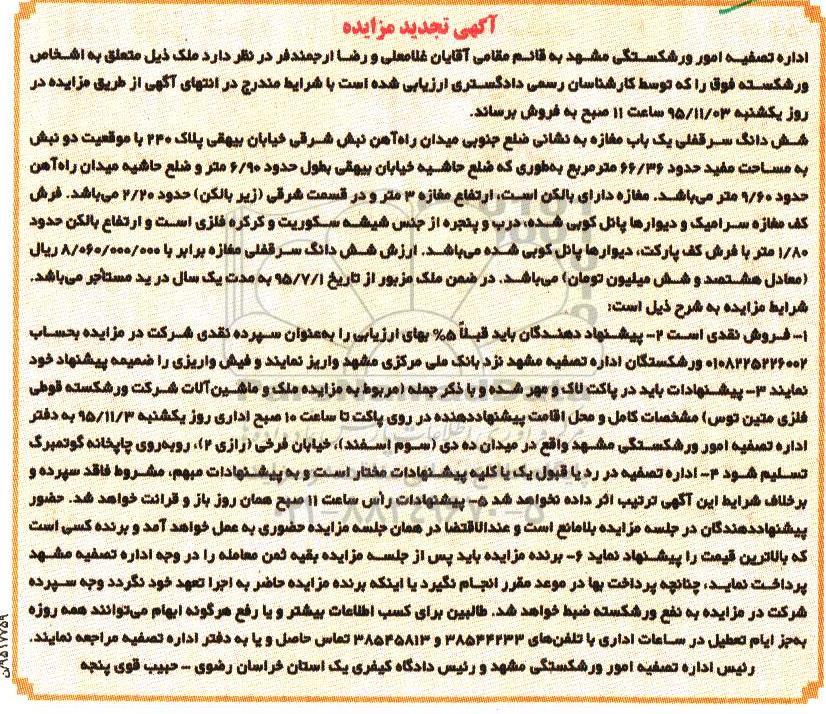 آگهی تجدید مزایده
اداره تصفیه امور ورشکستگی مشهد به قائم مقامی آقایان غلامعلی و رضا ارجمندفر در نظر دارد ملک ذیل متعلق به اشخاص
ورشکسته فوق را که توسط کارشناسان رسمی دادگستری ارزیابی شده است با شرایط مندرج در انتهای آگهی از طریق مزایده در
روز یکشنبه ۹۵/۱۱/۰۳ ساعت ۱۱ صبح به فروش برساند.
شش دانگ سرقفلی یک باب مغازه به نشانی ضلع جنوبی میدان راه‌آهن نبش شرقی خیابان بیهقی پلاک ۲۴۰ با موقعیت دو نبش
به مساحت مفید حدود ۶۶/۳۶ مترمربع به‌طوری که ضلع حاشیه خیابان بیهقی بطول حدود ۶/۹۰ متر و ضلع حاشیه میدان راه‌آهن
حدود ۹/۶۰ متر می‌باشد. مغازه دارای بالکن است، ارتفاع مغازه ۳ متر و در قسمت شرقی (زیر بالکن) حدود ۲/۲۰ می‌باشد. فرش
کف مغازه سرامیک و دیوارها پانل کوبی شده، درب و پنجره از جنس شیشه سکوریت و کرکره فلزی است و ارتفاع بالکن حدود
۱/۸۰ متر با فرش کف پارکت، دیوارها پانل کوبی شده می‌باشد. ارزش شش دانگ سرقفلی مغازه برابر با ۸/۰۶۰/۰۰۰/۰۰۰ ریال
(معادل هشتصد و شش میلیون تومان) می‌باشد. در ضمن ملک مزبور از تاریخ ۹۵/۷/۱ به مدت یک سال در ید مستأجر می‌باشد.
شرایط مزایده به شرح ذیل است:
۱- فروش نقدی است ۲- پیشنهاد دهندگان باید قبلاً ۵% بهای ارزیابی را به‌عنوان سپرده نقدی شرکت در مزایده بحساب
۰۱۰۸۲۲۵۲۲۶۰۰۲ ورشکستگان اداره تصفیه مشهد نزد بانک ملی مرکزی مشهد واریز نمایند و فیش واریزی را ضمیمه پیشنهاد خود
نمایند ۳- پیشنهادات باید در پاکت لاک و مهر شده و با ذکر جمله (مربوط به مزایده ملک و ماشین‌آلات شرکت ورشکسته قوطی
فلزی متین توس) مشخصات کامل و محل اقامت پیشنهاددهنده در روی پاکت تا ساعت ۱۰ صبح اداری روز یکشنبه ۹۵/۱۱/۳ به دفتر
اداره تصفیه امور ورشکستگی مشهد واقع در میدان ده دی (سوم اسفند)، خیابان فرخی (رازی ۲)، روبه‌روی چاپخانه گوتمبرگ
تسلیم شود ۴- اداره تصفیه در رد یا قبول یک یا کلیه پیشنهادات مختار است و به پیشنهادات مبهم، مشروط فاقد سپرده و
برخلاف شرایط این آگهی ترتیب اثر داده نخواهد شد ۵- پیشنهادات رأس ساعت ۱۱ صبح همان روز باز و قرائت خواهد شد. حضور
پیشنهاددهندگان در جلسه مزایده بلامانع است و عندالاقتضا در همان جلسه مزایده حضوری به عمل خواهد آمد و برنده کسی است
که بالاترین قیمت را پیشنهاد نماید ۶- برنده مزایده باید پس از جلسه مزایده بقیه ثمن معامله را در وجه اداره تصفیه مشهد
پرداخت نماید، چنانچه پرداخت بها در موعد مقرر انجام نگیرد یا اینکه برنده مزایده حاضر به اجرا تعهد خود نگردد وجه سپرده
شرکت در مزایده به نفع ورشکسته ضبط خواهد شد. طالبین برای کسب اطلاعات بیشتر و یا رفع هرگونه ابهام می‌توانند همه روزه
به‌جز ایام تعطیل در ساعات اداری با تلفن‌های ۳۸۵۴۴۲۳۳ و ۳۸۵۴۵۸۱۳ تماس حاصل و یا به دفتر اداره تصفیه مراجعه نمایند.
رئیس اداره تصفیه امور ورشکستگی مشهد و رئیس دادگاه کیفری یک استان خراسان رضوی - حبیب قوی پنجه
ParsNamadData
۰۲۱-۸۸۳۴۹۶۷۰-۵